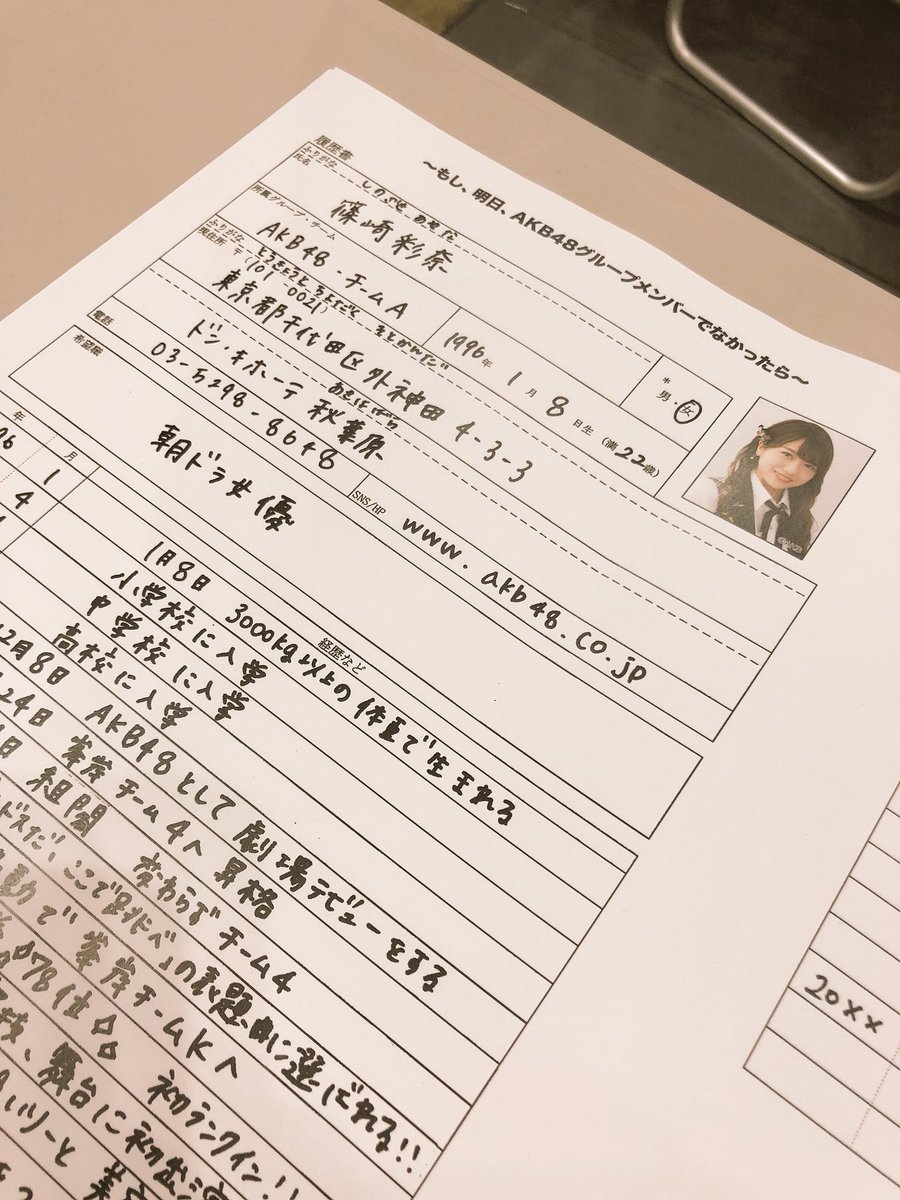 ～もし、明日、AKB48グループメンバーでなかったら～
履歴書
ふりがな しのざき あやな
氏名 篠崎 彩奈
*
男・女
所属グループ・チーム
AKB48・チームA
1996年 1月 8日生 (満22歳)
ふりがな とうきょうと ちよだく そとかんだ
現住所 〒(101-0021)
東京都千代田区外神田 4-3-3
あきはばら
ドン・キホーテ 秋葉原
電話 03-5298-8648
SNS/HP www.akb48.co.jp
希望職
朝ドラ女優
年 月 経歴など
96 1 1月8日 3000kg以上の体重で生まれる
4 小学校に入学
中学校に入学
高校に入学
2月8日 AKB48として劇場デビューをする
24日 峯岸チーム4へ昇格
日 組閣 変わらずチーム4
ドスだ、ここで跳べ」の表題曲に選ばれる!!
動で 峯岸チームKへ
78位 初ランクイン!!
技、舞台に初出演
いリーと 美
20××